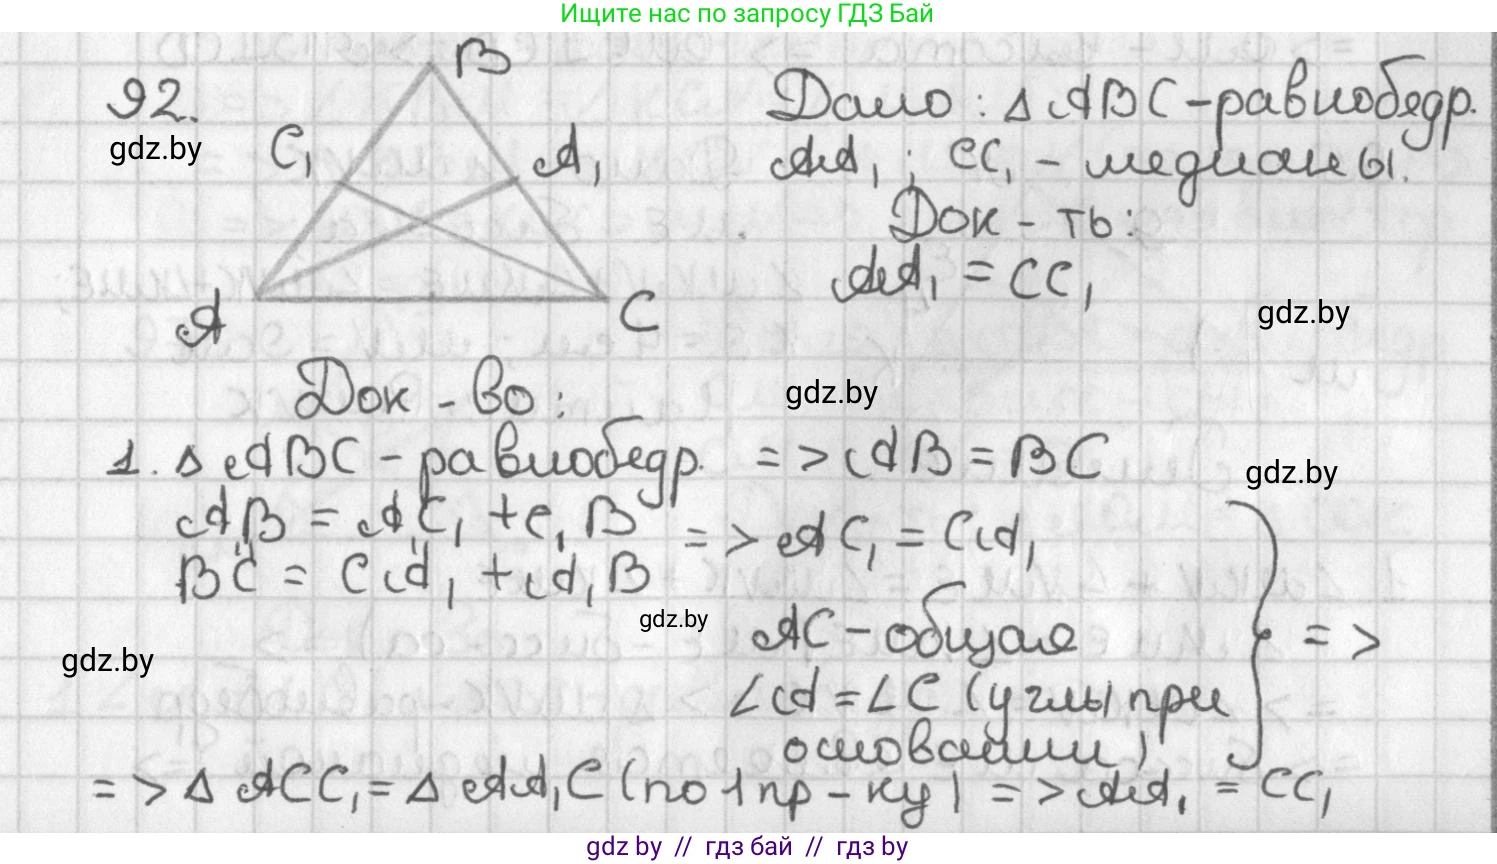 Ищите нас по запросу ГДЗ Бай
92.
gdz.by
B
C₁
A₁
A
C
Дано: Δ ABC - равнобедр.
AA₁ ; CC₁ - медианы.
Док - ть:
AA₁ = CC₁
gdz.by
Док - во:
gdz.by
1. Δ ABC - равнобедр. => AB = BC
gdz.by
AB = AC₁ + C₁B
BC = CA₁ + A₁B
=> AC₁ = CA₁
gdz.by
AC - общая
=>
gdz.by
∠A = ∠C (углы при
основании)
=> Δ ACC₁ = Δ AA₁C (по 1 пр - ку) => AA₁ = CC₁
gdz.by // гдз бай // гдз by